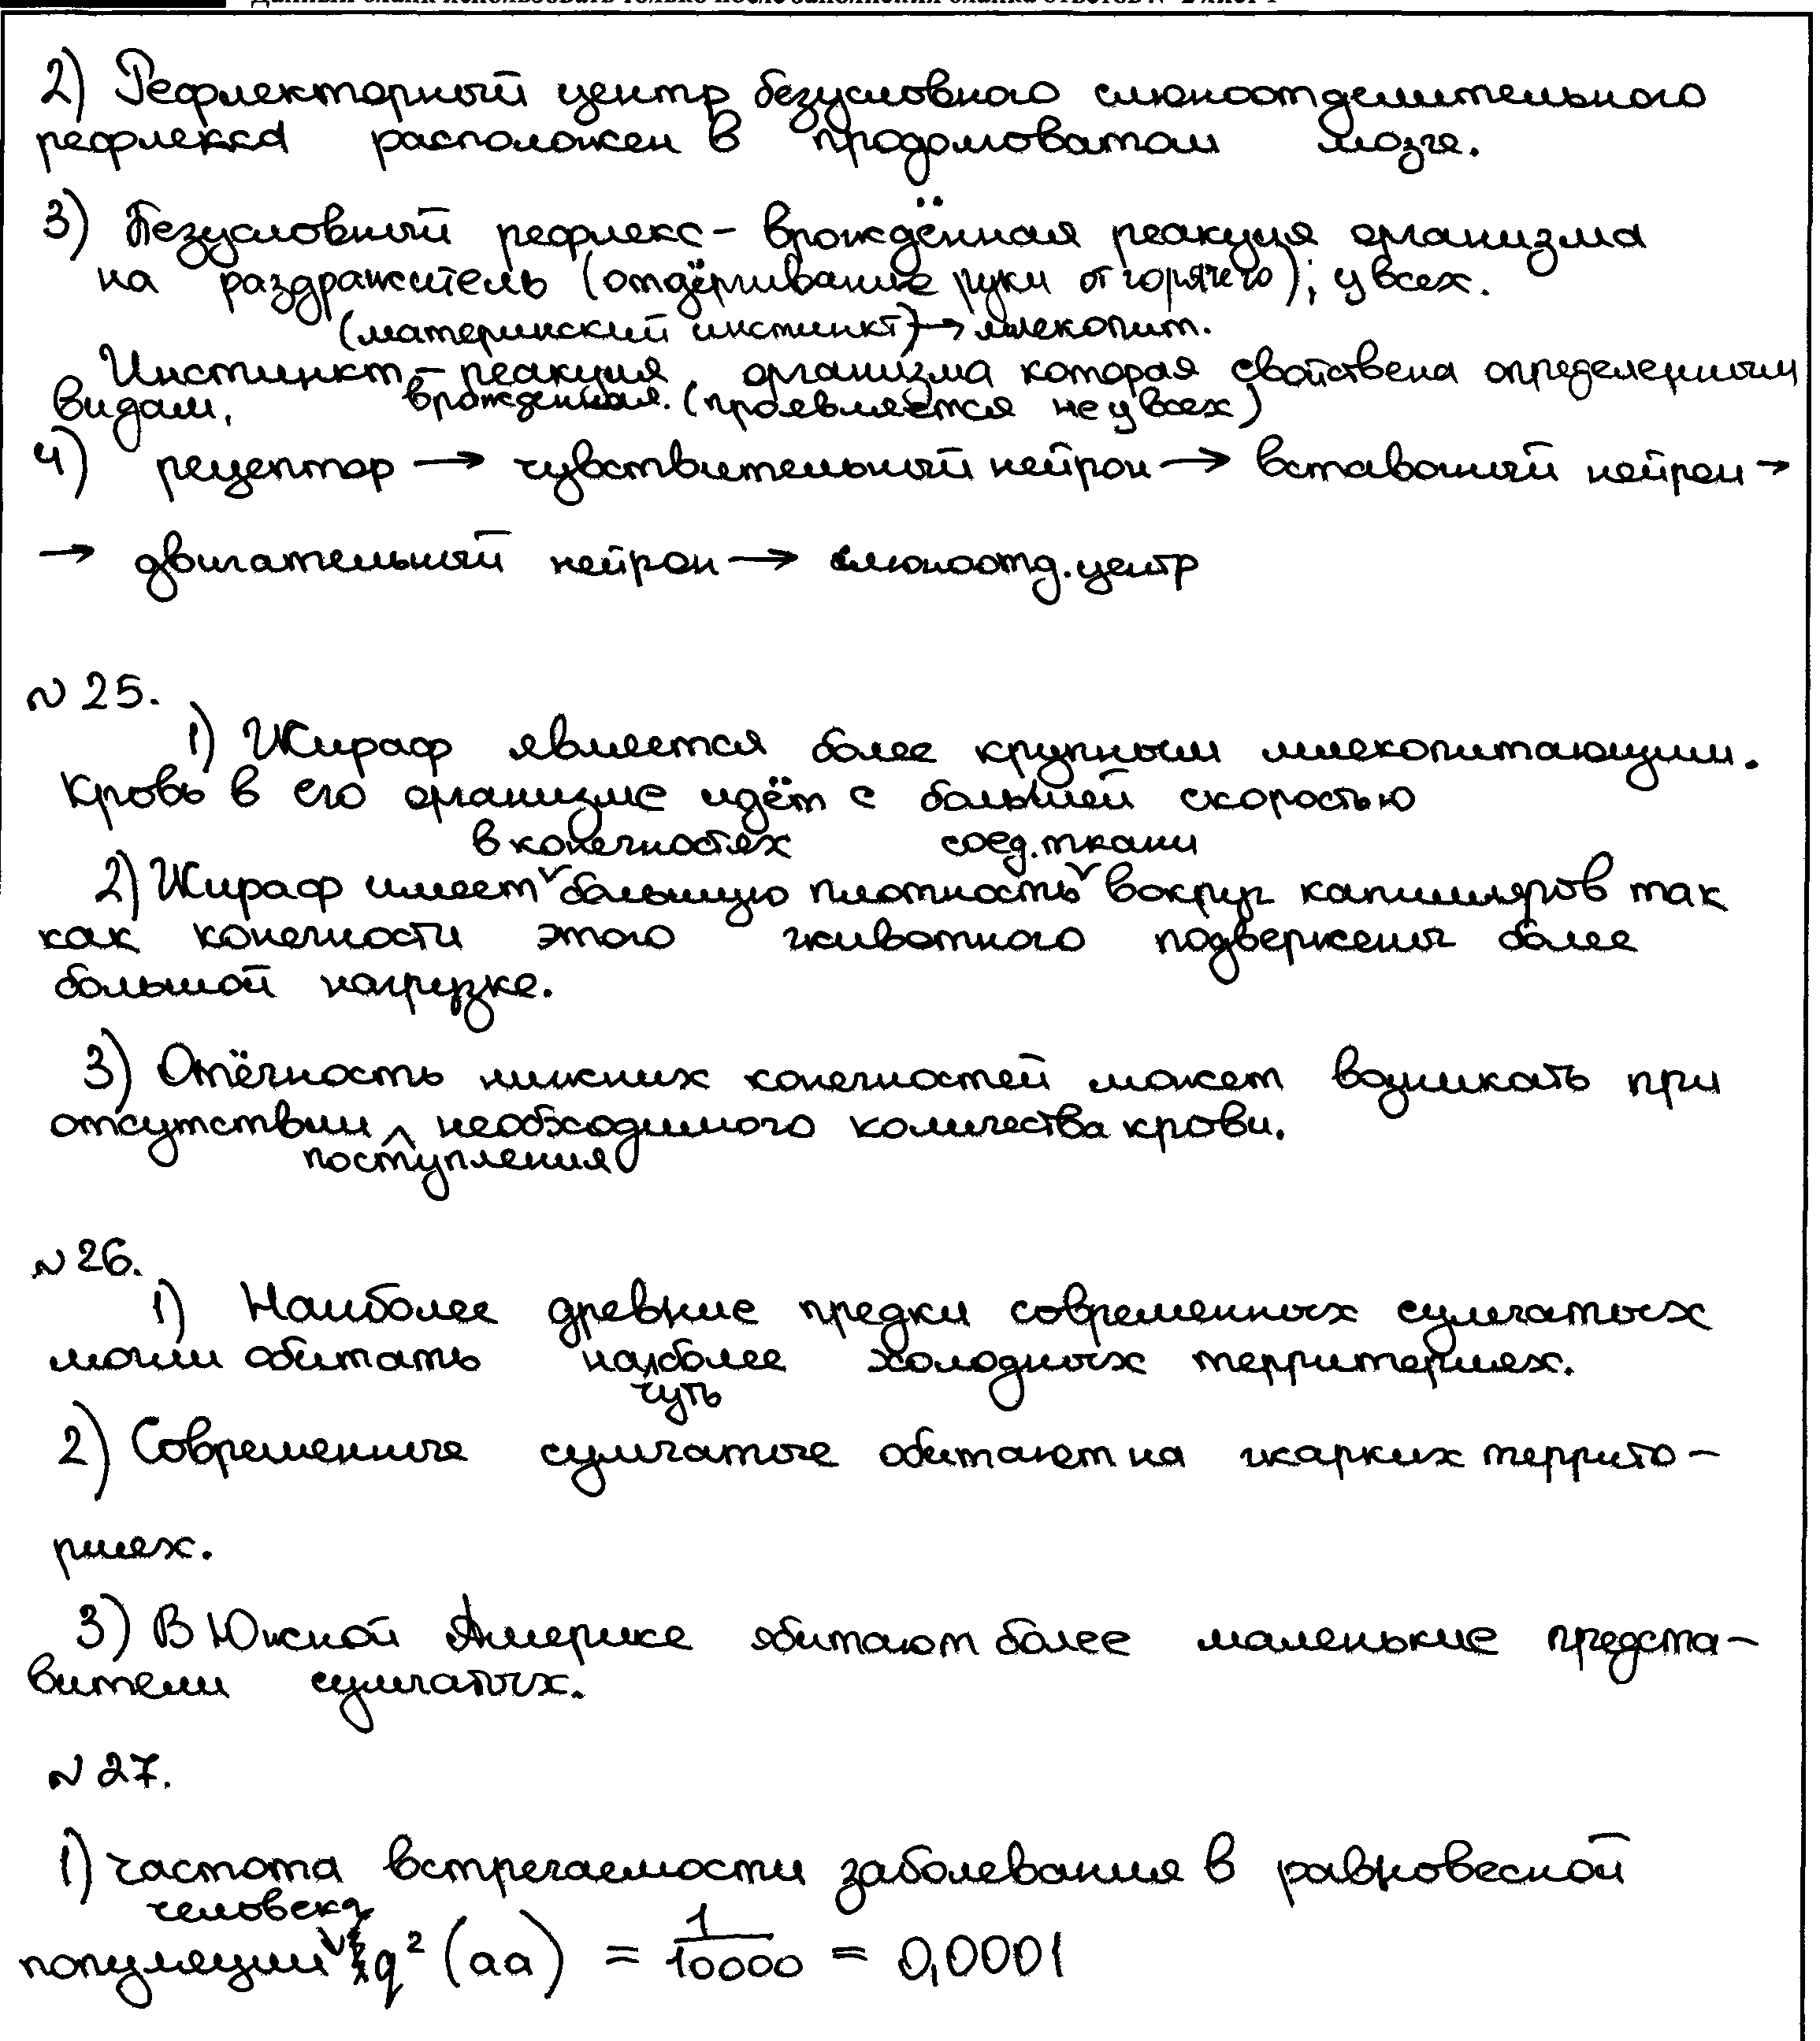 Данный бланк использовать только после заполнения бланка ответов № 2 лист 1
2) Рефлекторный центр безусловного слюноотделительного
рефлекса расположен в продолговатом мозге.
3) Безусловный рефлекс – врождённая реакция организма
на раздражитель (отдёргивание руки от горячего); у всех.
(материнский инстинкт) → млекопит.
Инстинкт – реакция организма которая свойствена определенным
видам, врожденная. (проявляется не у всех)
4) рецептор → чувствительный нейрон → вставочный нейрон →
→ двигательный нейрон → слюноотд. центр
№ 25.
1) Жираф является более крупным млекопитающим.
Кровь в его организме идёт с большей скоростью
в конечностях соед. ткани
2) Жираф имеет большую плотность вокруг капилляров так
как конечности этого животного подвержены более
большой нагрузке.
3) Отёчность нижних конечностей может возникать при
отсутствии необходимого количества крови.
поступления
№ 26.
1) Наиболее древние предки современных сумчатых
могли обитать наиболее холодных территориях.
чуть
2) Современные сумчатые обитают на жарких террито-
риях.
3) В Южной Америке обитают более маленькие предста-
вители сумчатых.
№ 27.
1) частота встречаемости заболевания в равновесной
человека
популяции q² (aa) = 1/10000 = 0,0001